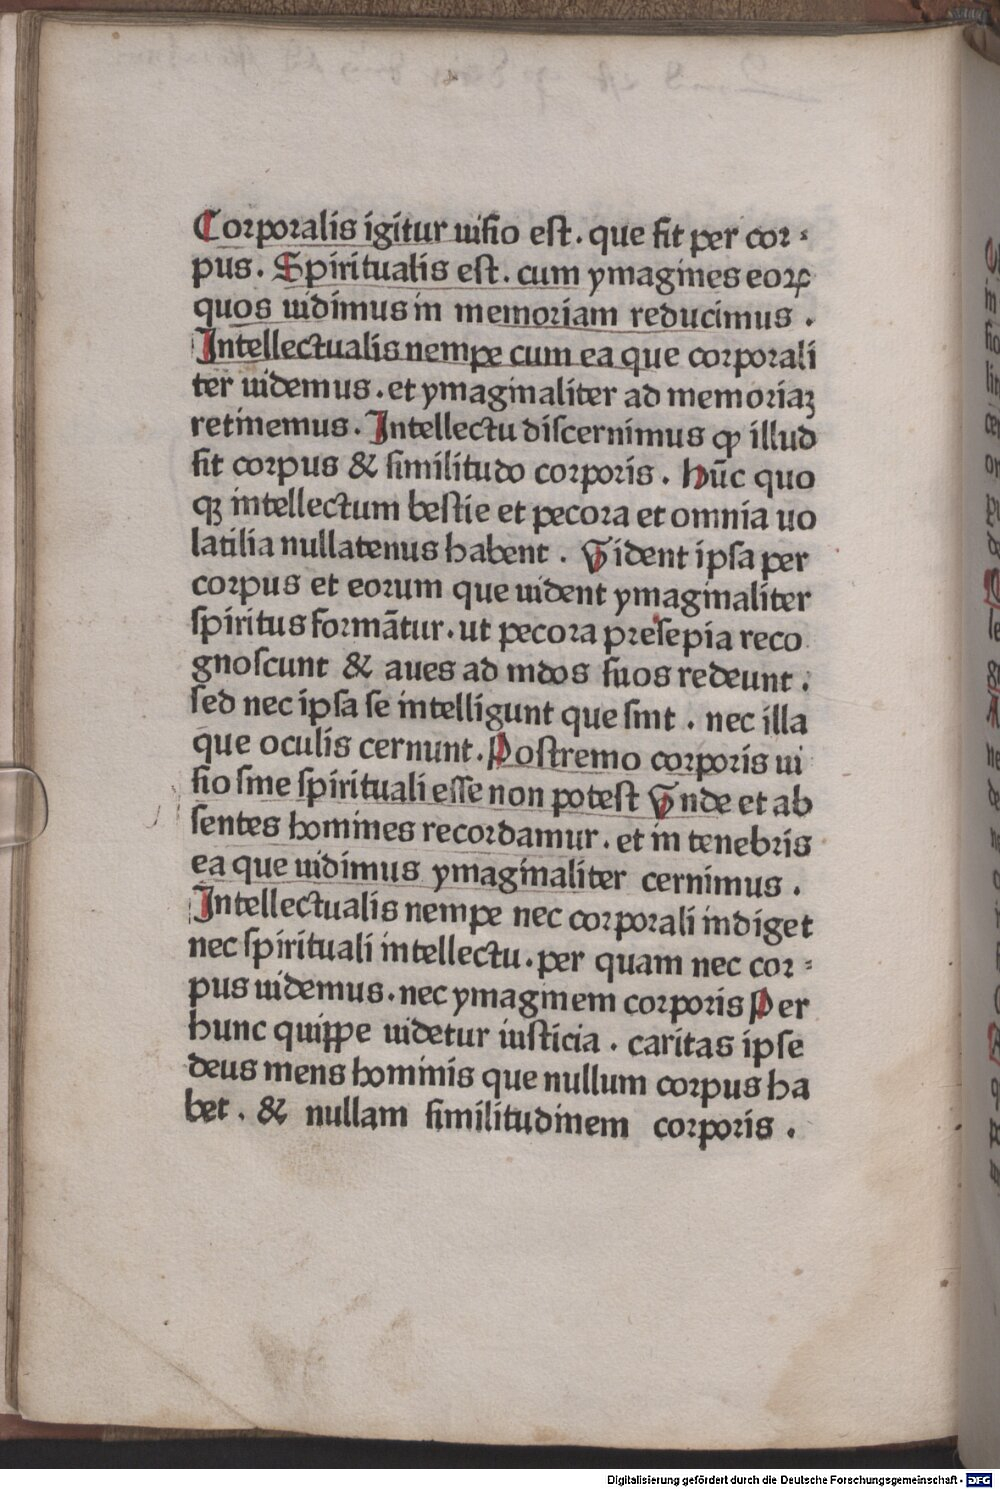 Corporalis igitur uisio est. que fit per cor⸗
pus. Spiritualis est. cum ymagines eoꝝ
quos uidimus in memoriam reducimus .
Intellectualis nempe cum ea que corporali
ter uidemus. et ymaginaliter ad memoriaꝫ
retinemus. Intellectu discernimus ꝙ illud
sit corpus & similitudo corporis. hūc quo
qꝫ intellectum bestie et pecora et omnia uo
latilia nullatenus habent . Vident ipsa per
corpus et eorum que uident ymaginaliter
spiritus formātur. ut pecora presepia reco
gnoscunt & aues ad nidos suos redeunt .
sed nec ipsa se intelligunt que sint . nec illa
que oculis cernunt. Postremo corporis ui
sio sine spirituali esse non potest Vnde et ab
sentes homines recordamur. et in tenebris
ea que uidimus ymaginaliter cernimus .
Intellectualis nempe nec corporali indiget
nec spirituali intellectu. per quam nec cor⸗
pus uidemus. nec ymaginem corporis Per
hunc quippe uidetur iusticia . caritas ipse
deus mens hominis que nullum corpus ha
bet . & nullam similitudinem corporis .
Digitalisierung gefördert durch die Deutsche Forschungsgemeinschaft - DFG